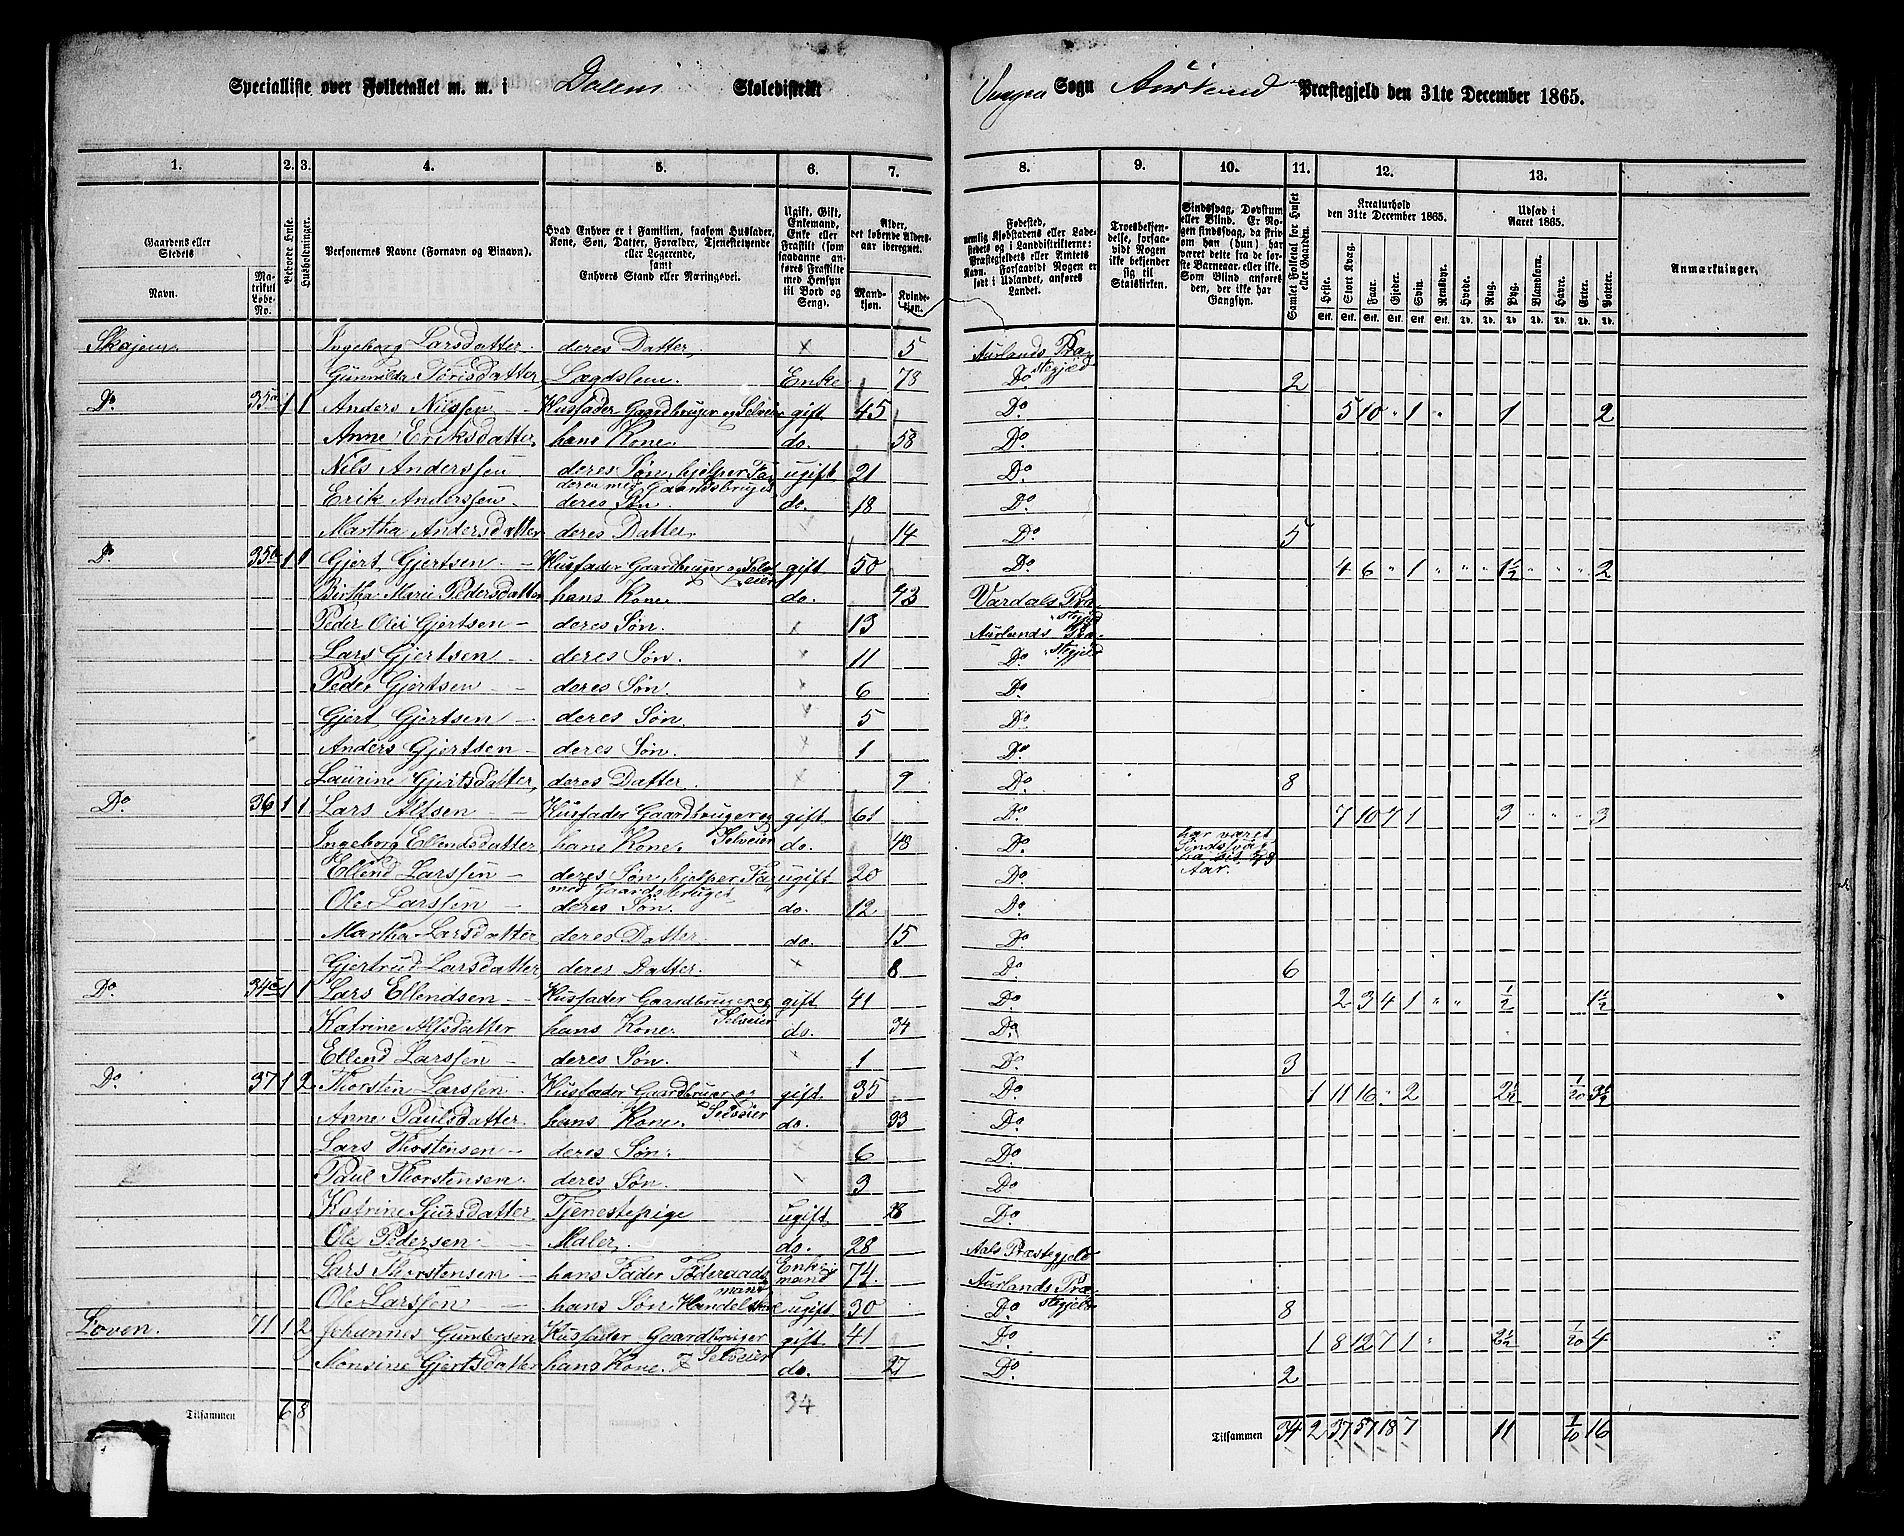 Specialliste over Folketallet m. m. i Dalens Skoledistrikt
Vangen Sogn Aurland Præstegjeld den 31te December 1865.
1. 2. 3. 4. 5. 6. 7. 8. 9. 10. 11. 12. 13.
Gaardens eller Stedets Navn.
Matrikul Løbe-No.
Beboede Huse.
Husholdninger.
Personernes Navne (Fornavn og Binavn).
Hvad Enhver er i Familien, saasom Husfader, Kone, Søn, Datter, Forældre, Tjenestetyende eller Logerende, samt Enhvers Stand eller Næringsvei.
Ugift, Gift, Enkemand, Enke eller Fraskilt (som saadanne anføres Fraskilte med Hensyn til Bord og Seng).
Alder, det løbende Aldersaar iberegnet.
Mandkjøn. Kvindekjøn.
Fødested, nemlig Kjøbstadens eller Ladestedets og i Landdistrikterne: Præstegjeldets eller Amtets Navn. Forsaavidt Nogen er født i Udlandet, anføres Landet.
Troesbekjendelse, forsaavidt Nogen ikke bekjender sig til Statskirken.
Sindssvag, Døvstum eller Blind. Er Nogen sindssvag, da skrives om han (hun) har været dette før de første Barneaar, eller ikke. Som Blind anføres den, der ikke har Gangsyn.
Samlet Folketal for Huset eller Gaarden.
Kreaturhold den 31te December 1865.
Heste. Stort Kvæg. Faar. Gjeder. Svin. Rensdyr.
Udsæd i Aaret 1865.
Hvede. Rug. Byg. Blandkorn. Havre. Erter. Poteter.
Anmærkninger.
Skajem Ingeborg Larsdatter deres Datter × 5 Aurlands Præstegjeld
Gunvilda Torisdatter Lægdslem. Enke 73 Do 2
Do 35a 1 1 Anders Nilssen Husfader Gaardbruger og Selveier gift 45 Do 5 10 " 1 " 1 2
Anne Eriksdatter hans Kone. do. 58 Do
Nils Anderssen deres Søn, hjelper Faderen med Gaardsbruget ugift 21 Do
Erik Anderssen deres Søn do. 18 Do
Martha Andersdatter deres Datter 14 Do 5
Do 35b 1 1 Gjert Gjertsen Husfader Gaardbruger og Selveier gift 50 Do 4 6 " 1 " " 1½ " " " 2
Birtha Marie Pedersdatter hans Kone do. 43 Vardals Præstegjeld
Peder Olei Gjertsen deres Søn. × 13 Aurlands Præstegjeld
Lars Gjertsen deres Søn. × 11 Do
Peder Gjertsen deres Søn. × 6 Do
Gjert Gjertsen deres Søn. × 5 Do
Anders Gjertsen deres Søn. × 1 Do
Laurine Gjertsdatter deres Datter. × 9 Do 8
Do 36 1 1 Lars Alfsen Husfader Gaardbruger og Selveier gift 61 Do 7 10 7 1 3 " " " 3
Ingeborg Ellendsdatter hans Kone. do. 48 Do har været Sindssvag
Aar.
Ellend Larssen deres Søn hjelper Far med Gaardsbruget ugift 20 Do
Ole Larssen deres Søn. do. 12 Do
Martha Larsdatter deres Datter. do. 15 Do
Gjertrud Larsdatter deres Datter. × 8 Do 6
Do 34c 1 1 Lars Ellendsen Husfader Gaardbruger og Selveier gift 41 Do 2 3 4 1 " " ½ 1½
Katrine Alfsdatter hans Kone. do. 34 Do
Ellend Larssen deres Søn. × 1 Do 3
Do 37 1 2 Thorsten Larssen Husfader Gaardbruger og Selveier gift. 35 Do 1 11 16 " 2 2½ 1/20 3½
Anne Paulsdatter hans Kone. do. 33 Do
Lars Thorstensen deres Søn. 6 Do
Paul Thorstensen deres Søn. 3 Do
Katrine Sjursdatter Tjenestepige ugift 28 Do
Ole Pedersen Maler. do. 28 Aals Præstegjeld
Lars Thorstensen hans Fader Føderaadsmand Enkemand 74 Aurlands Præstegjeld
Ole Larssen hans Søn ugift 30 Do 8
Loven. 71 1 2 Johannes Gundersen Husfader Gaardbruger gift 41 Do 1 8 12 7 1 " 2½ 1/20 4
Monsine Gjertsdatter hans Kone. Selveier do. 27 Do 2
34
Tilsammen 6 8
Tilsammen 34 2 37 57 18 7 11 1/10 16